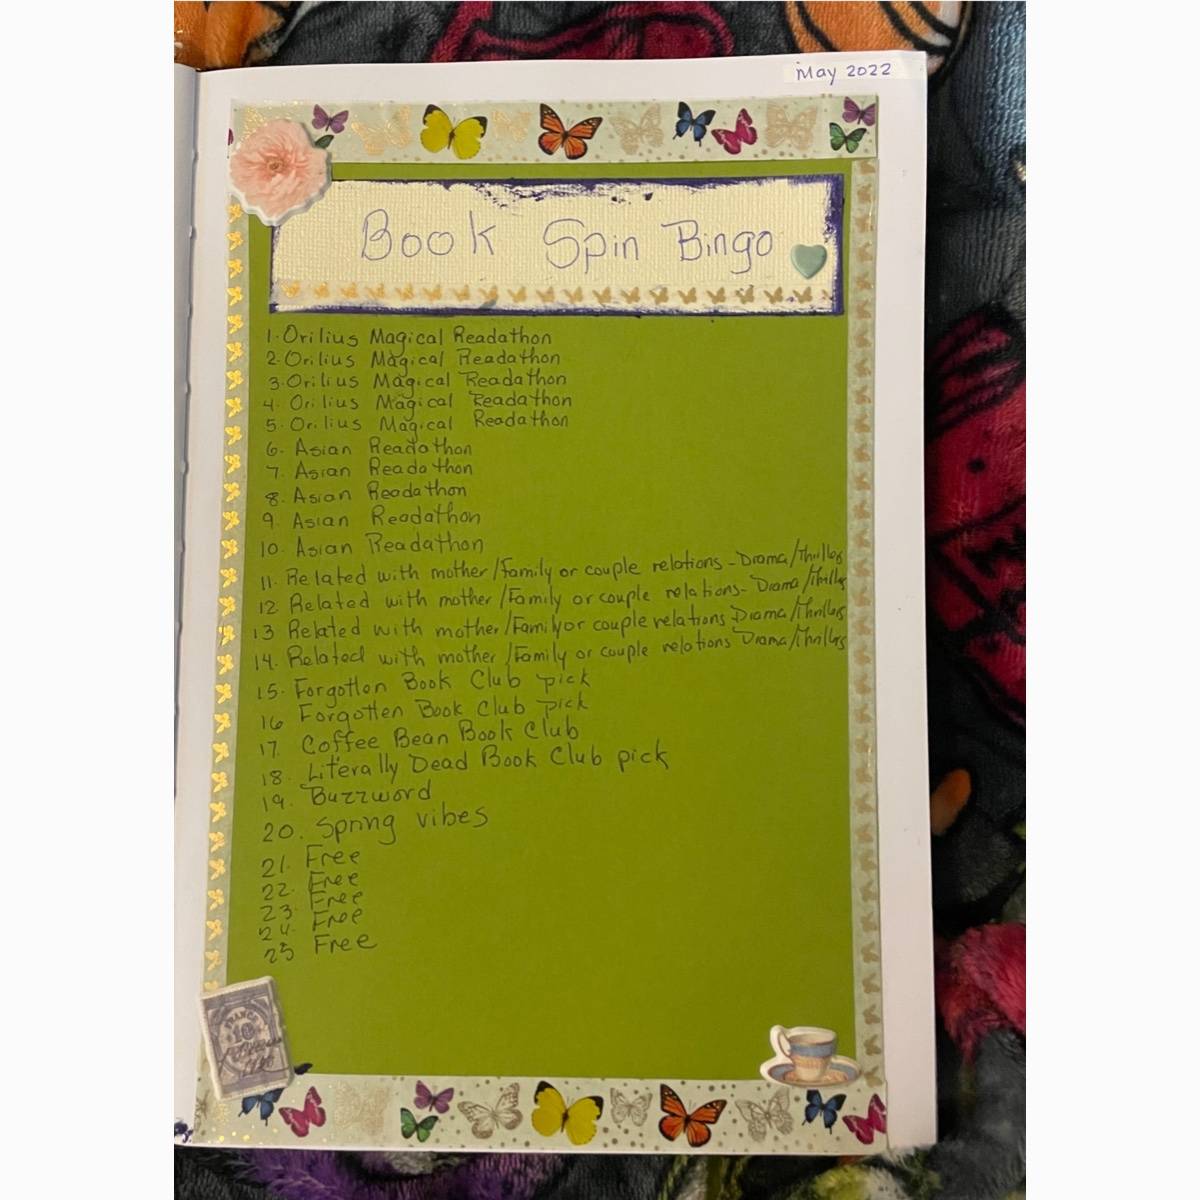 May 2022
Book Spin Bingo
1. Orilius Magical Readathon
2. Orilius Magical Readathon
3. Orilius Magical Readathon
4. Orilius Magical Readathon
5. Orilius Magical Readathon
6. Asian Readathon
7. Asian Readathon
8. Asian Readathon
9. Asian Readathon
10. Asian Readathon
11. Related with mother/Family or couple relations - Drama/Thrillers
12. Related with mother/Family or couple relations - Drama/Thrillers
13 Related with mother/Family or couple relations Drama/Thrillers
14. Related with mother/Family or couple relations Drama/Thrillers
15. Forgotten Book Club pick
16 Forgotten Book Club pick
17. Coffee Bean Book Club
18. Literally Dead Book Club pick
19. Buzzword
20. Spring vibes
21. Free
22. Free
23. Free
24. Free
25 Free
FRANCE
10